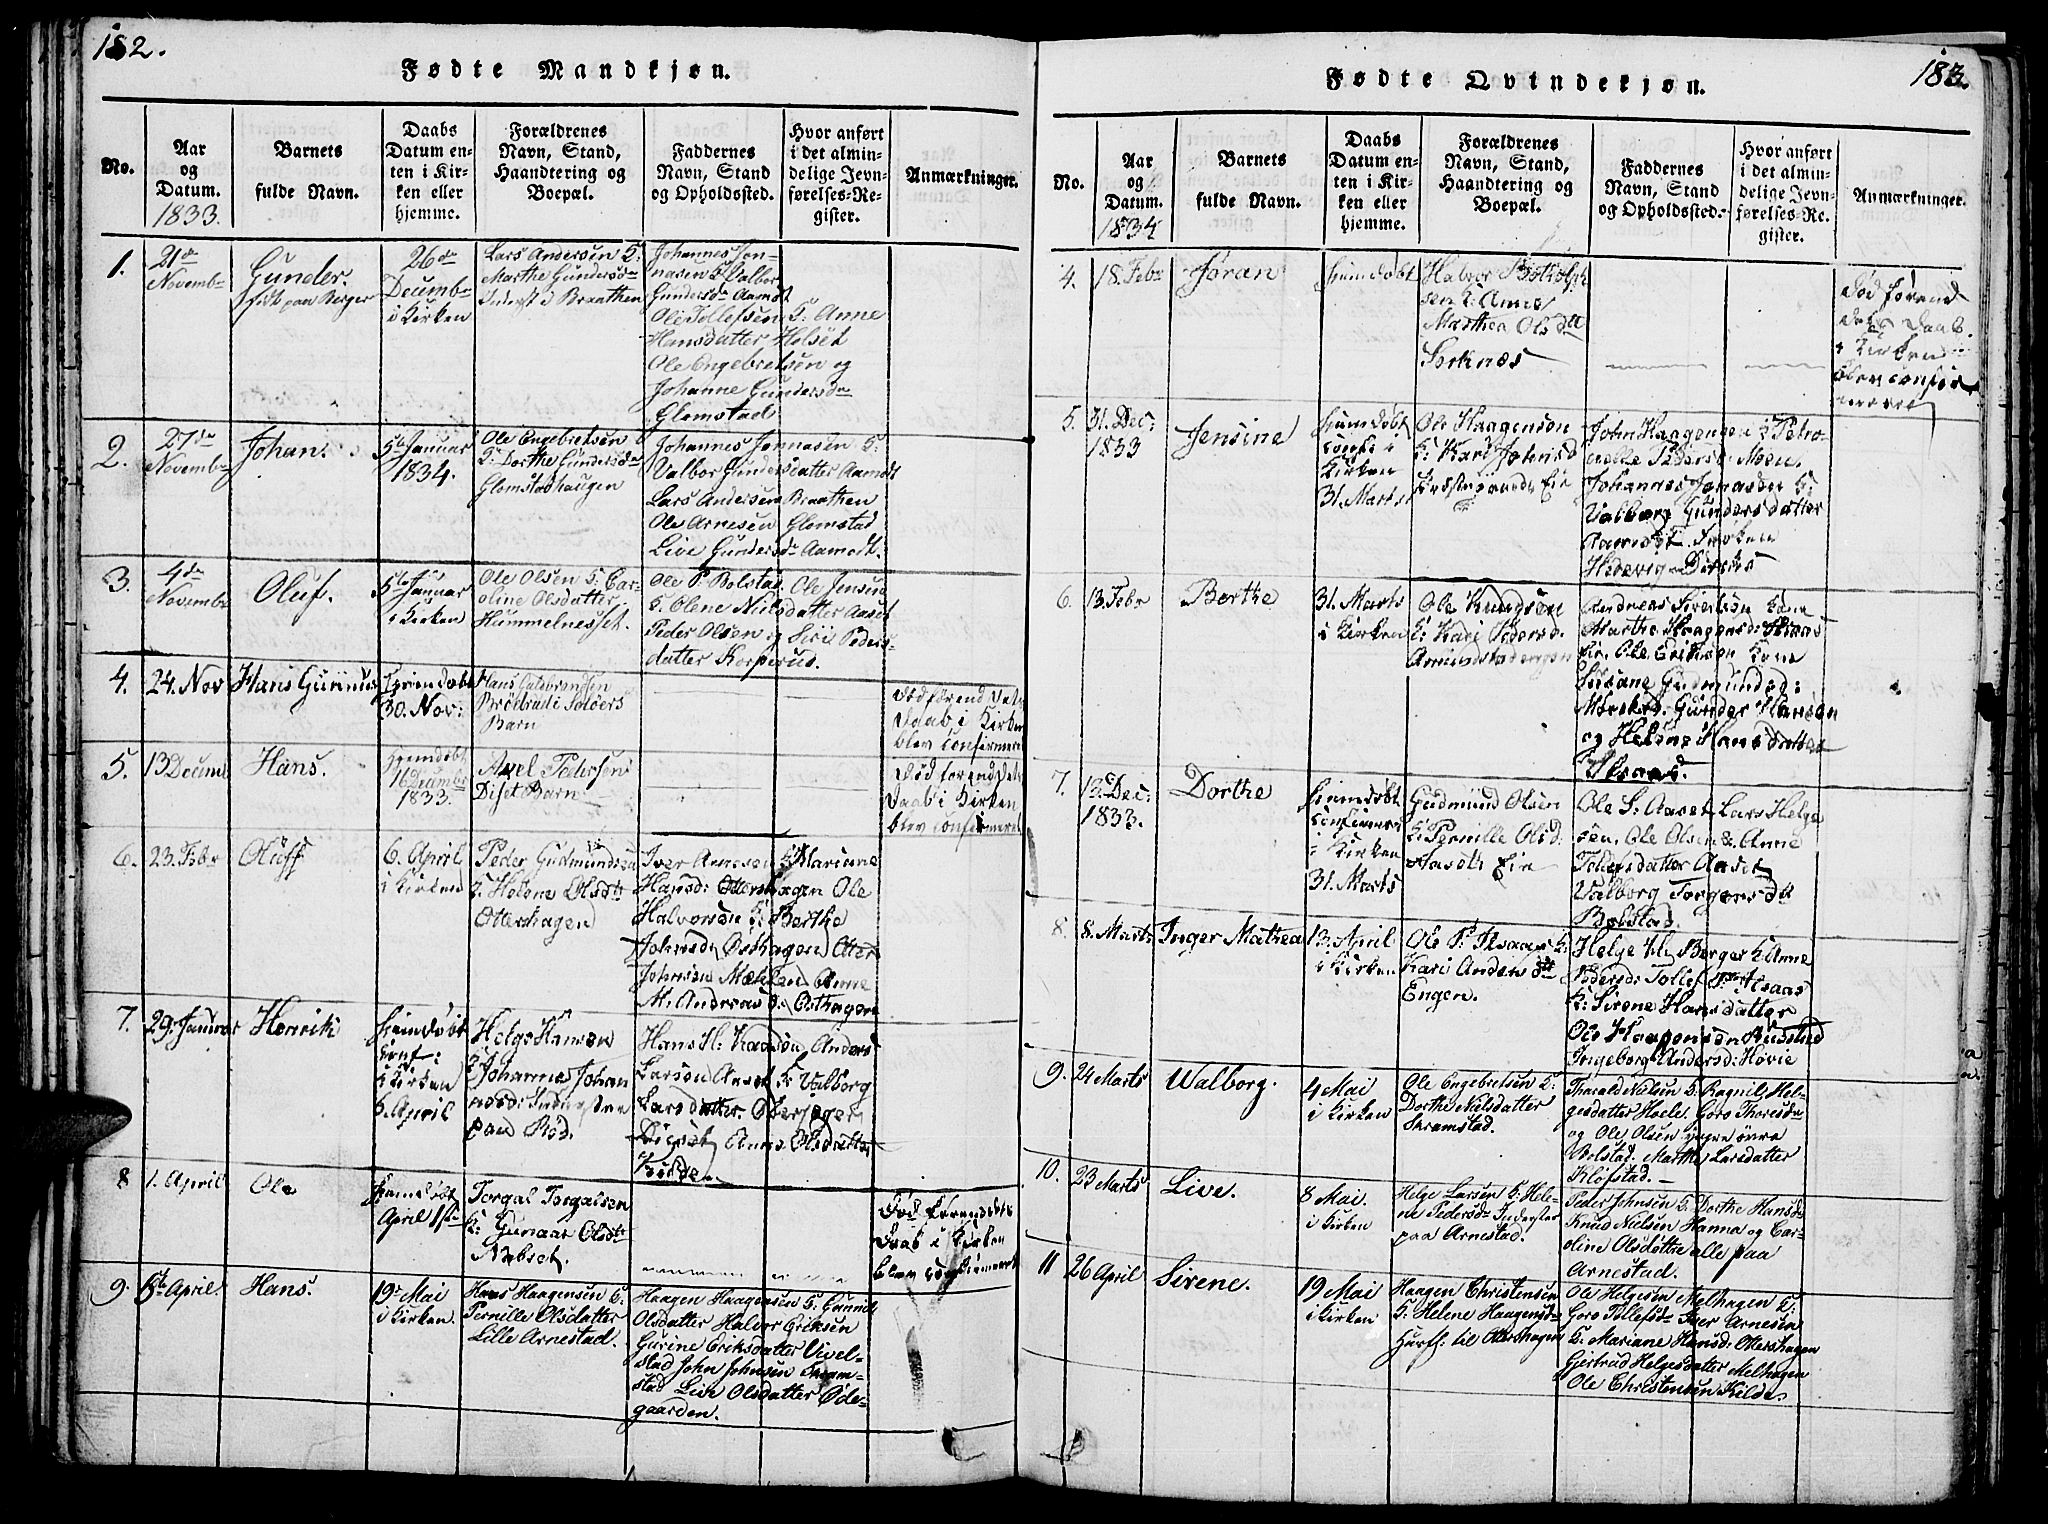 182.
Fødte Mandkjøn.
No.
Aar
og
Datum.
1833.
Barnets
fulde Navn.
Daabs
Datum en-
ten i Kir-
ken eller
hjemme.
Forældrenes
Navn, Stand,
Haandtering og
Boepæl.
Faddernes
Navn, Stand
og Opholdssted.
Hvor anført
i det almin-
delige Jevn-
førelses-Re-
gister.
Anmærkninger.
1.
21de
Novembr
Gunder.
født paa Berger
26de
Decembr
i Kirken
Lars Andersen &
Marthe Gundersdr
Inderst i Braathen
Johannes Jon-
nasen & Valbor
Gundersdr Aamot
Ole Tollefsen & Anne
Hansdatter Holset
Ole Engebretsen og
Johanne Gundersdr
Glomstad
2.
27de
Novembr
Johan.
5te Januar
1834.
Ole Engebretsen
& Dorthe Gundersdr
Glomstadhaugen
Johannes Jonnasen &
Valbor Gundersdatter Aamodt
Lars Andersen Braathen
Ole Arnesen Glomstad
Live Gundersdr Aamodt.
3.
4de
Novembr
Oluf.
5te Januar
i Kirken
Ole Olsen & Car-
oline Olsdatter
Hummelnesset.
Ole P. Bolstad Ole Jensen
& Olene Nielsdatter Aaset
Peder Olsen og Siri Peders-
datter Korperus.
4.
24. Nov
Hans Gurinus
Hjemdøbt
30. Nov:
Hans Guldbrandsen
Brødrud i Soløers
Barn
Død førend dets
Daab i Kirken
blev confirmeret
5.
13 Decemb
Hans.
Hjemdøbt
16 Decembr
1833.
Axel Pedersen
Diset Barn
Død førend dets
Daab i Kirken
blev confirmeret
6.
23. Febr
Oluff
6. April
i Kirken
Peder Gudmundsen
& Helene Olsdtr
Ottershagen
Iver Arnesen & Mariane
Hansd: Ottershagen Ole
Halvorsen & Berthe
Johnsd: Osthagen Otter
Johnsen Mæhlen Anne
M. Andreasd: Osthagen
7.
29. Januar
Henrik
Hjemdøbt
Conf:
i Kirken
6 April
Helge Hansen
& Johanne Johan
nesd: Inderster
paa Rød.
Hans H: Kaasen Anders
Larsen Aaset & Valborg
Larsdatter Oberseger
Anne Olsdatter
Kilde.
8
1. April
Ole
Hjemdøbt
April 1ste
Torgal Torgalsen
& Gunaar Olsdtr
Næbset.
Død førend dets
Daab i Kirken
blev confirmeret
9.
5te April.
Hans.
19. Mai
i Kirken.
Hans Haagensen &
Pernille Olsdatter
Lille Arnestad.
Haagen Haagensen & Gunnil
Olsdatter Halvor Eriksen
Gurine Eriksdatter Vivel-
stad John Johnsen Skram-
stad Live Olsdatter Øde-
gaarden.
183.
Fødte Qvindekjøn.
No.
Aar
og
Datum.
1834
Barnets
fulde Navn.
Daabs
Datum en-
ten i Kir-
ken eller
hjemme.
Forældrenes
Navn, Stand,
Haandtering og
Boepæl.
Faddernes
Navn, Stand
og Opholdssted.
Hvor anført
i det almin-
delige Jevn-
førelses-Re-
gister.
Anmærkninger.
4.
18. Febr
Jøran
Hjemdøbt
Halvor Botolph
sen & Anne
Marthea Olsdtr
Sorknæs
Død førend
dets Daab
i Kirken
blev confir
meret
5.
31. Dec:
1833
Jensine
Hjemdøbt
Conf: i
Kirken
31. Marts
Ole Haagensen
& Kari Johnsd
Eie
John Haagensen & Petro-
nelle Pedersd Moen.
Johannes Jonasen &
Valborg Gundersdatter
Aamodt
Hedevig Dirkes
6.
13. Febr
Berthe
31. Marts
i Kirken
Ole Knudsen
& Kari Pedersd.
Arnestadengen
Andreas Sivertsen Kone
Marthe Haagensd:
Ole Eriksen Kone
Sirene Gudmundsd:
Gunder Hansen
og Helene Hansdatter
7.
13. Dec:
1833.
Dorthe
Hjemdøbt
Confirmeret
i Kirken
31. Marts
Gudmund Olsen
& Pernille Olsd.
Aasets Eie
Ole S. Aaset Lars Helge
sen, Ole Olsen & Anne
Tollefsdatter Aaset
Valborg Torgersdtr
Bolstad.
8.
8. Marts
Inger Mathea
13. April
i Kirken
Ole P. &
Kari Andersdtr
Engen.
Helge Berger & Anne
Pedersd: Tollef
& Sirene Hansdatter
Ole Haagensen Rustad
Ingeborg Andersd: Hovie
9.
24 Marts
Walborg.
4 Mai
i Kirken
Ole Engebretsen &
Dorthe Nielsdatter
Skramstad.
Tharald Nielsen & Ragnil Hel-
gesdatter Hoele. Goro Thoresdr
og Ole Olsen yngre øvre
Bolstad. Marthe Larsdatter
Kløfstad.
10.
23 Marts
Live.
8 Mai.
i Kirken.
Helge Larsen & Hele-
ne Pedersdr Inderster
paa Arnestad.
Peder Johnsen & Dorthe Hansdr
Knud Nielsen Hanna og Car-
oline Olsdøttre alle paa
Arnestad.
11
26 April
Sirene.
19 Mai
i Kirken
Haagen Christensen
& Helene Haagensdr
Huusf: til Ottershagen
Ole Helgesen Melhagen &
Goro Tollefsdr Iver Arnesen
& Mariane Hansd: Ottershagen
Gjertrud Helgesdatter Melhagen
Ole Christensen Kilde.